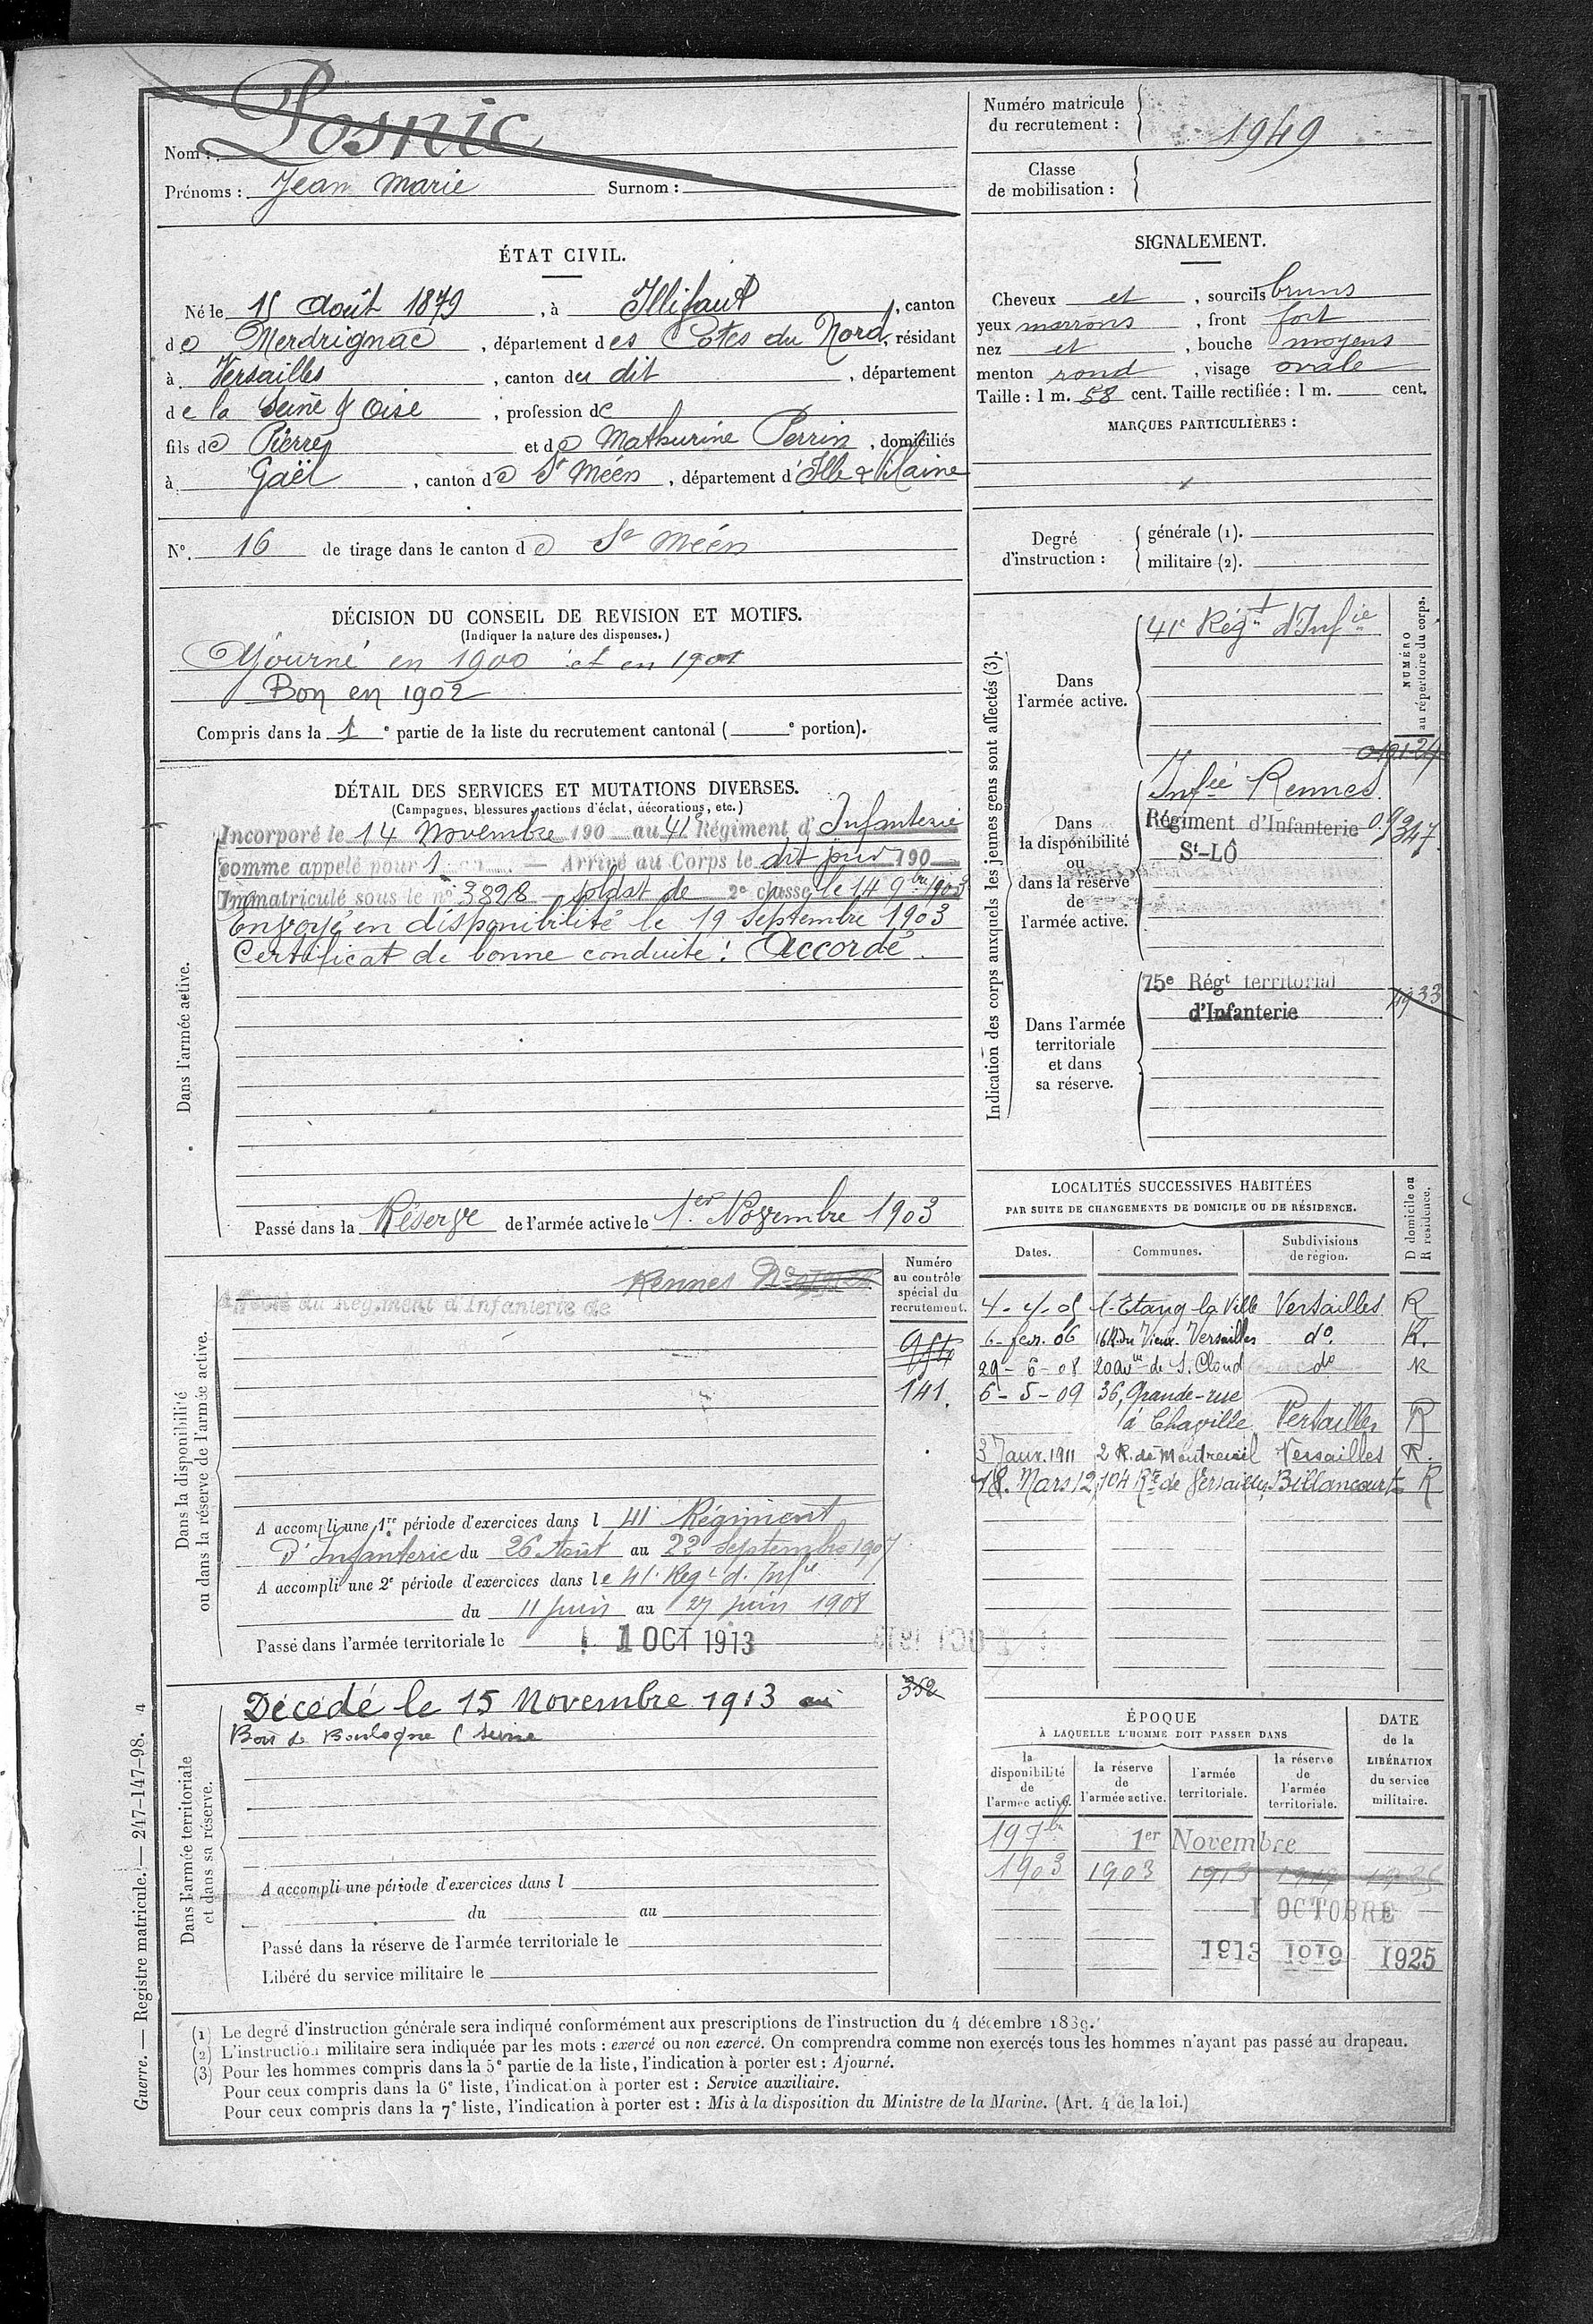 Nom : Posnic
Prénoms : Jean Marie Surnom :
Numéro matricule du recrutement : 1949
Classe de mobilisation :
ÉTAT CIVIL.
Né le 15 Août 1879, à Illifaut, canton
de Merdrignac, département des Côtes du Nord, résidant
à Versailles, canton du dit, département
de la Seine & Oise, profession de
fils de Pierre et de Mathurine Perrin, domiciliés
à Gaël, canton de St Méen, département d'Ille & Vilaine
N° 16 de tirage dans le canton de St Méen
DÉCISION DU CONSEIL DE REVISION ET MOTIFS.
(Indiquer la nature des dispenses.)
Ajourné en 1900 et en 1901
Bon en 1902
Compris dans la 1e partie de la liste du recrutement cantonal ( e portion).
DÉTAIL DES SERVICES ET MUTATIONS DIVERSES.
(Campagnes, blessures, actions d'éclat, décorations, etc.)
Dans l'armée active.
Incorporé le 14 Novembre 190 au 41e Régiment d'Infanterie
comme appelé pour 1 an — Arrivé au Corps le dit jour 190
Immatriculé sous le n° 3828 soldat de 2e classe le 14 9bre
Envoyé en disponibilité le 19 Septembre 1903
Certificat de bonne conduite : Accordé.
Passé dans la Réserve de l'armée active le 1er Novembre 1903
Dans la disponibilité
ou dans la réserve de l'armée active.
Numéro
au contrôle
spécial du
recrutement.
Affecté au Régiment d'Infanterie de Rennes
141.
A accompli une 1re période d'exercices dans l 41 Régiment
d'Infanterie du 26 Août au 22 Septembre 1907
A accompli une 2e période d'exercices dans le 41e Regt d. Infie
du 11 juin au 27 juin 1908
Passé dans l'armée territoriale le 1 OCT 1913
Dans l'armée territoriale
et dans sa réserve.
352
Décédé le 15 Novembre 1913 au
Bois de Boulogne (Seine
A accompli une période d'exercices dans l
du au
Passé dans la réserve de l'armée territoriale le
Libéré du service militaire le
SIGNALEMENT.
Cheveux et, sourcils bruns
yeux marrons, front fort
nez et, bouche moyens
menton rond, visage ovale
Taille : 1 m. 58 cent. Taille rectifiée : 1 m. cent.
MARQUES PARTICULIÈRES :
Degré d'instruction : générale (1).
militaire (2).
Indication des corps auxquels les jeunes gens sont affectés (3).
NUMÉRO
au répertoire du corps.
Dans
l'armée active.
41e Régnt d'Infie
Dans
la disponibilité
ou
dans la réserve
de
l'armée active.
Infie Rennes
Régiment d'Infanterie
St-LÔ
Dans l'armée
territoriale
et dans
sa réserve.
75e Régt territorial
d'Infanterie
LOCALITÉS SUCCESSIVES HABITÉES
PAR SUITE DE CHANGEMENTS DE DOMICILE OU DE RÉSIDENCE.
Dates. Communes. Subdivisions de région. D domicile ou R résidence.
l'Etang la Ville Versailles R
6 fev. 06 16 R. du Vieux Versailles do R.
29-6-08 20 Avue de S. Cloud do R
6-5-09 36, Grande-rue
à Chaville Versailles R
3 Janv. 1911 2 R. de Montreuil Versailles R.
18. Mars 12 104 Rte de Versailles, Billancourt R
ÉPOQUE
À LAQUELLE L'HOMME DOIT PASSER DANS
DATE
de la
LIBÉRATION
du service
militaire.
la disponibilité de l'armée active.
la réserve de l'armée active.
l'armée territoriale.
la réserve de l'armée territoriale.
19 7bre 1er Novembre
1903 1903 1913
1 OCTOBRE
1913 1919 1925
(1) Le degré d'instruction générale sera indiqué conformément aux prescriptions de l'instruction du 4 décembre 1889.
(2) L'instruction militaire sera indiquée par les mots : exercé ou non exercé. On comprendra comme non exercés tous les hommes n'ayant pas passé au drapeau.
(3) Pour les hommes compris dans la 5e partie de la liste, l'indication à porter est : Ajourné.
Pour ceux compris dans la 6e liste, l'indication à porter est : Service auxiliaire.
Pour ceux compris dans la 7e liste, l'indication à porter est : Mis à la disposition du Ministre de la Marine. (Art. 4 de la loi.)
Guerre. — Registre matricule. — 247-147-98. 4